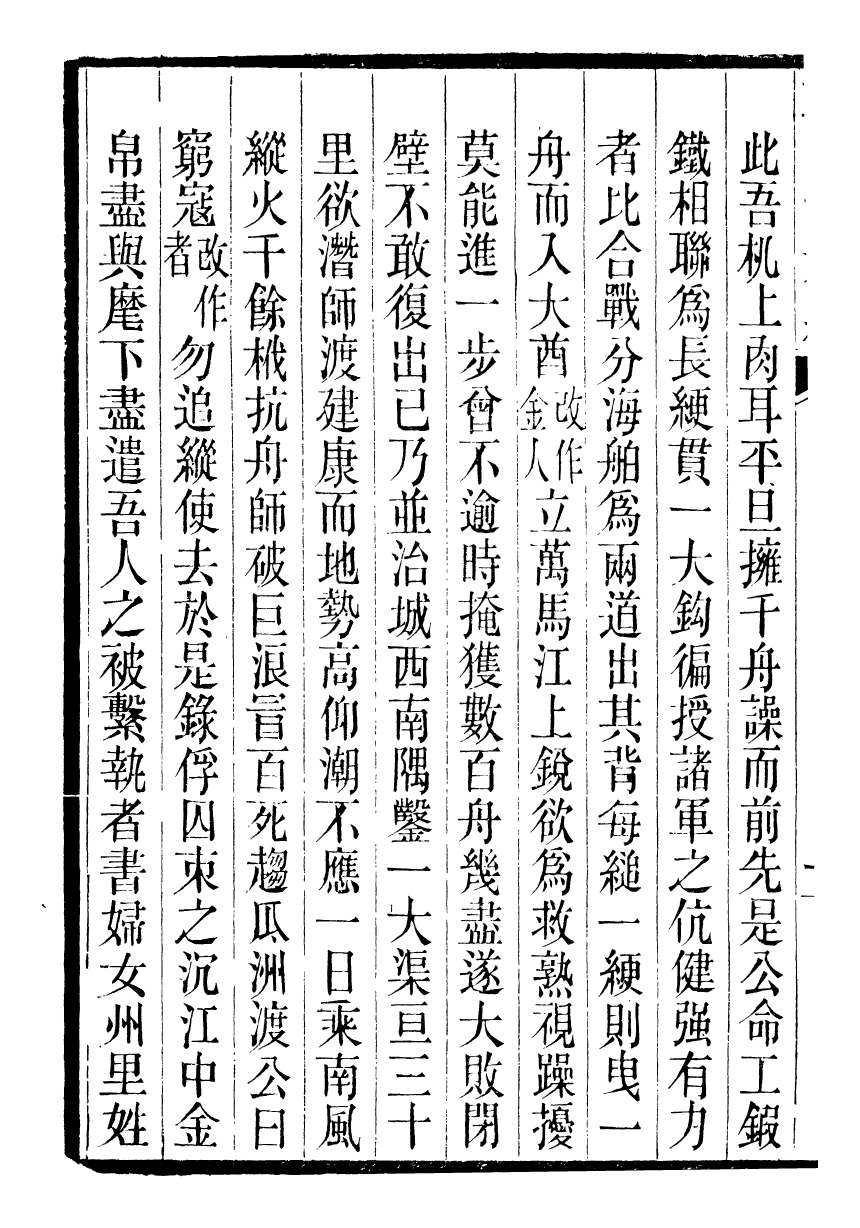 此吾机上肉耳平旦擁千舟譟而前先是公命工鍜
鐵相聯爲長綆貫一大鈎徧授諸軍之伉健强有力
者比合戰分海舶爲兩道出其背每縋一綆則曳一
舟而入大酋改作金人立萬馬江上銳欲爲救熟視躁擾
莫能進一步曾不逾時掩獲數百舟幾盡遂大敗閉
壁不敢復出已乃並治城西南隅鑿一大渠亘三十
里欲潛師渡建康而地勢高仰潮不應一日乘南風
縱火千餘栰抗舟師破巨浪冒百死趨瓜洲渡公曰
窮寇改作者勿追縱使去於是錄俘囚束之沉江中金
帛盡與麾下盡遣吾人之被繫執者書婦女州里姓